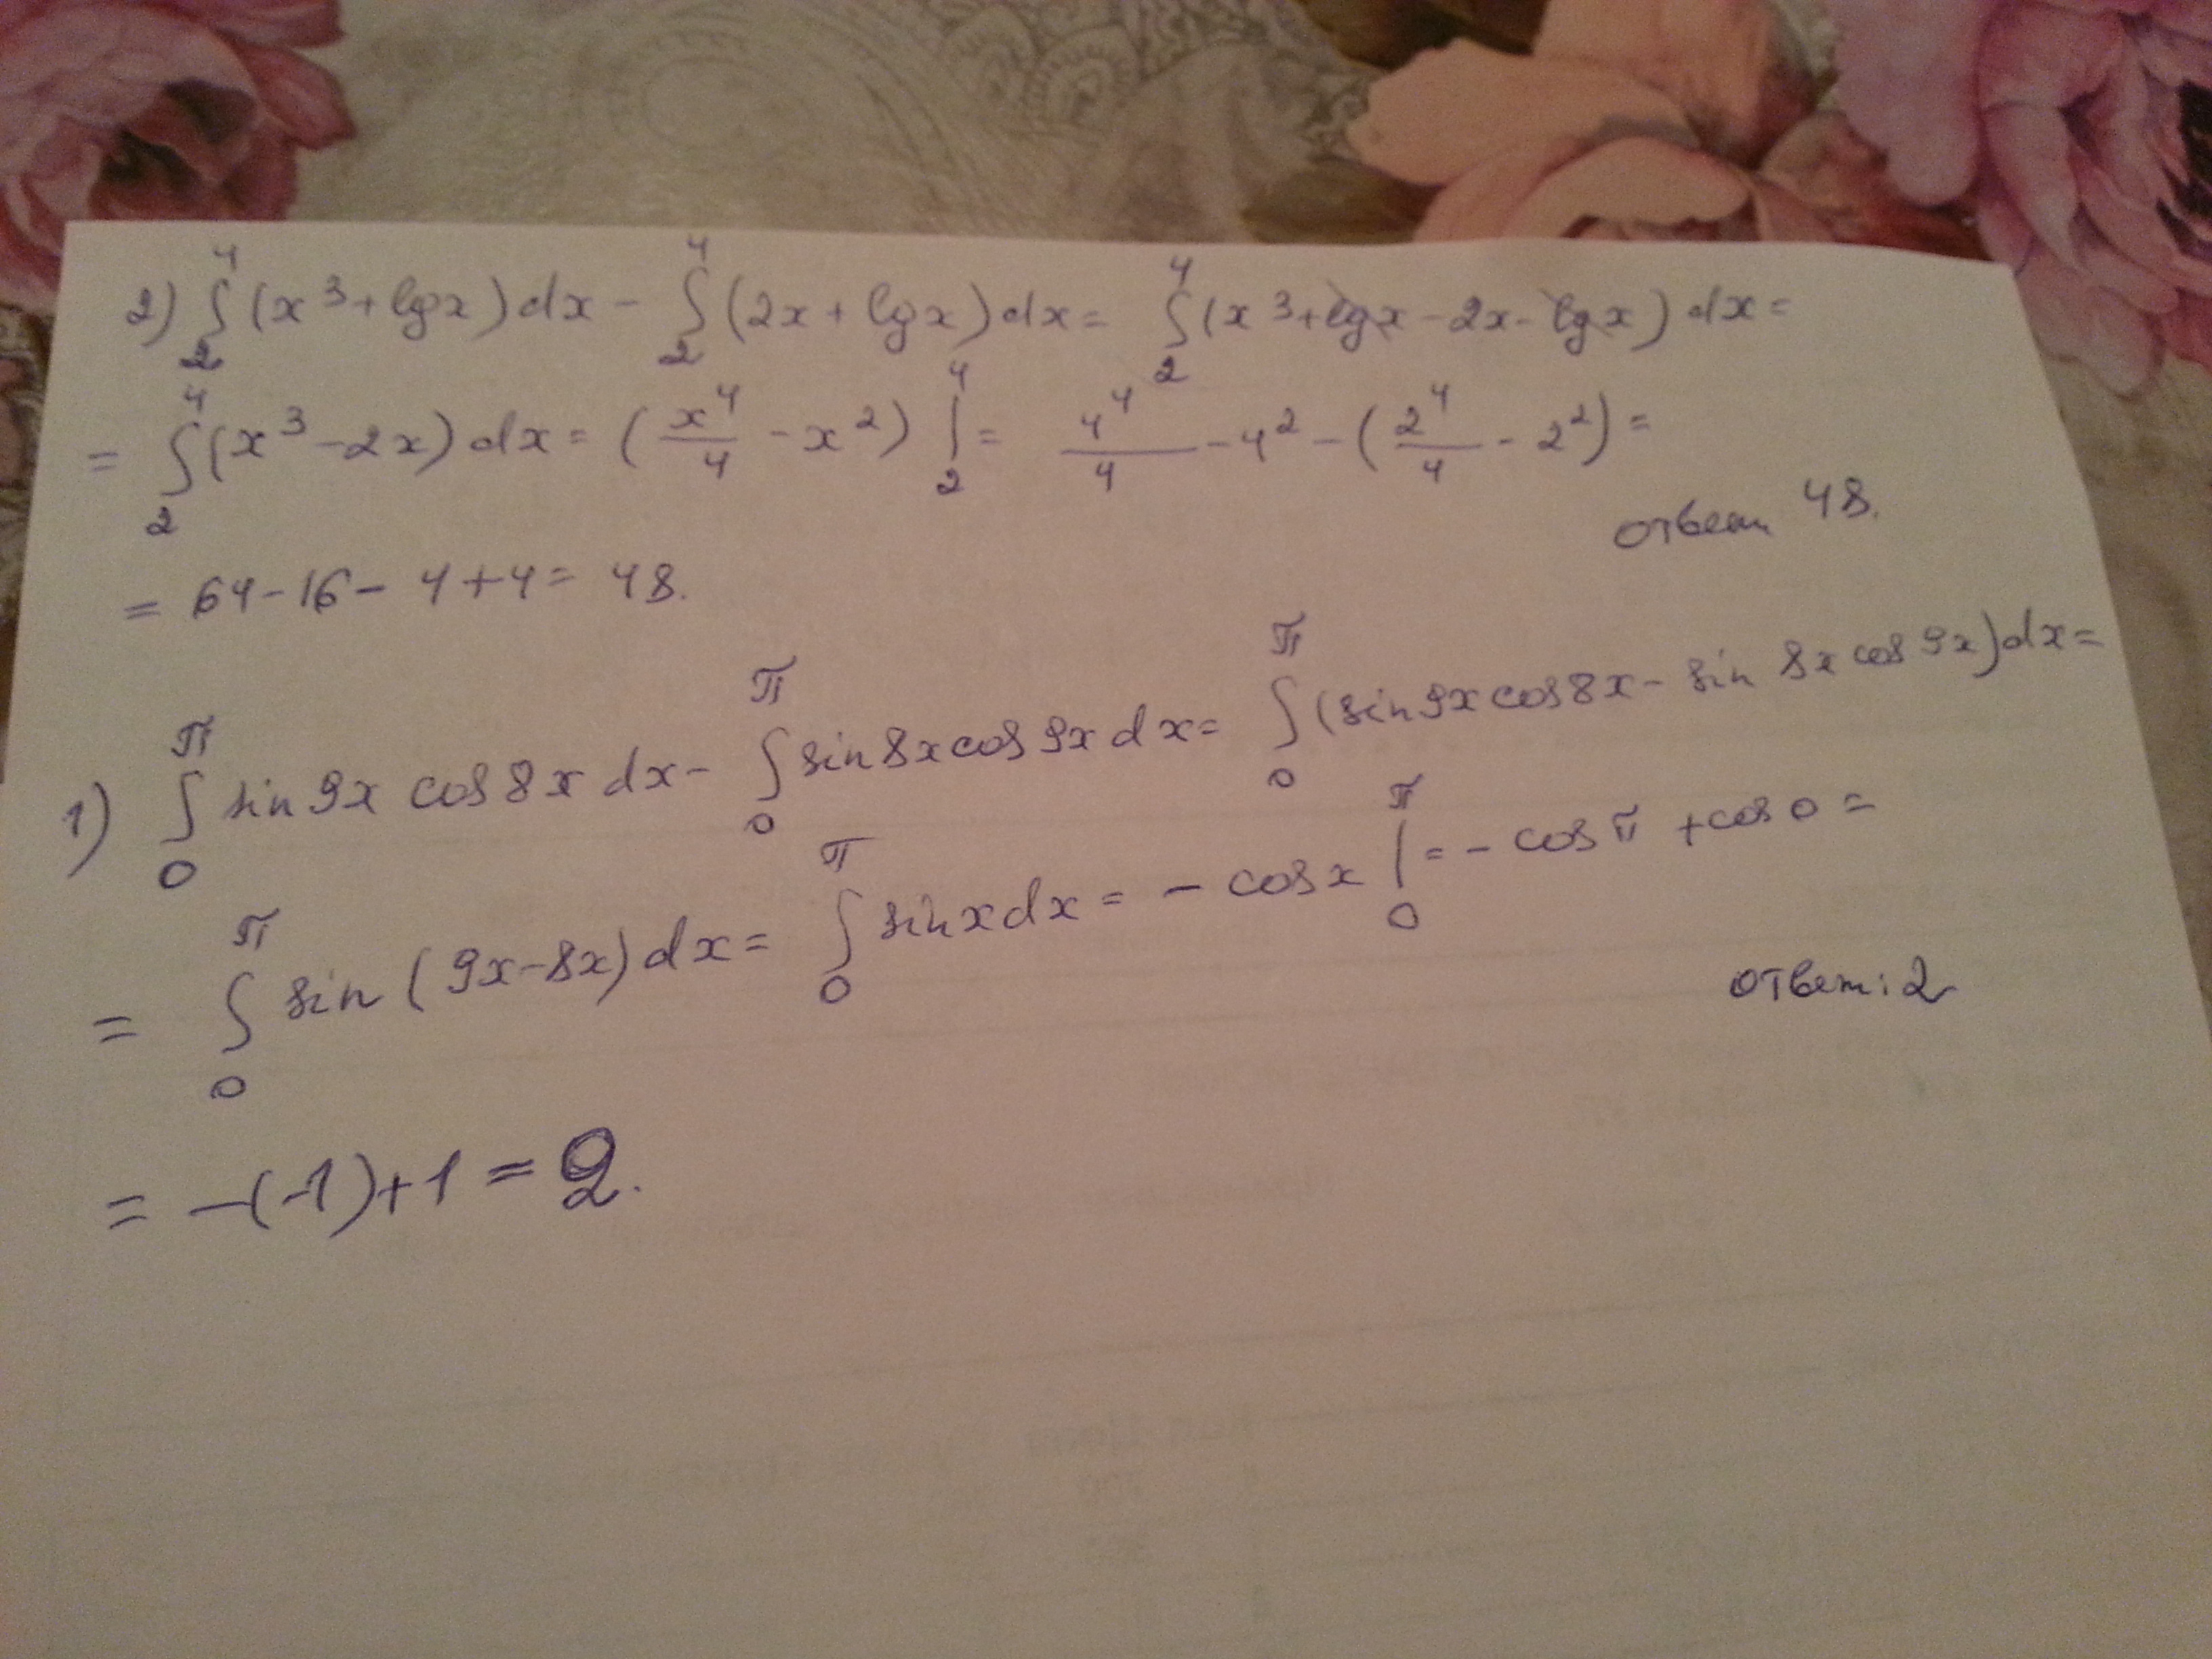 2) ∫₂⁴ (x³ + lgx) dx - ∫₂⁴ (2x + lgx) dx = ∫₂⁴ (x³ + lgx - 2x - lgx) dx =
= ∫₂⁴ (x³ - 2x) dx = (x⁴/4 - x²) |₂⁴ = 4⁴/4 - 4² - (2⁴/4 - 2²) =
ответ 48.
= 64 - 16 - 4 + 4 = 48.
1) ∫₀^π sin 9x cos 8x dx - ∫₀^π sin 8x cos 9x dx = ∫₀^π (sin 9x cos 8x - sin 8x cos 9x) dx =
= ∫₀^π sin (9x - 8x) dx = ∫₀^π sin x dx = - cos x |₀^π = - cos π + cos 0 =
ответ: 2
= -(-1) + 1 = 2.